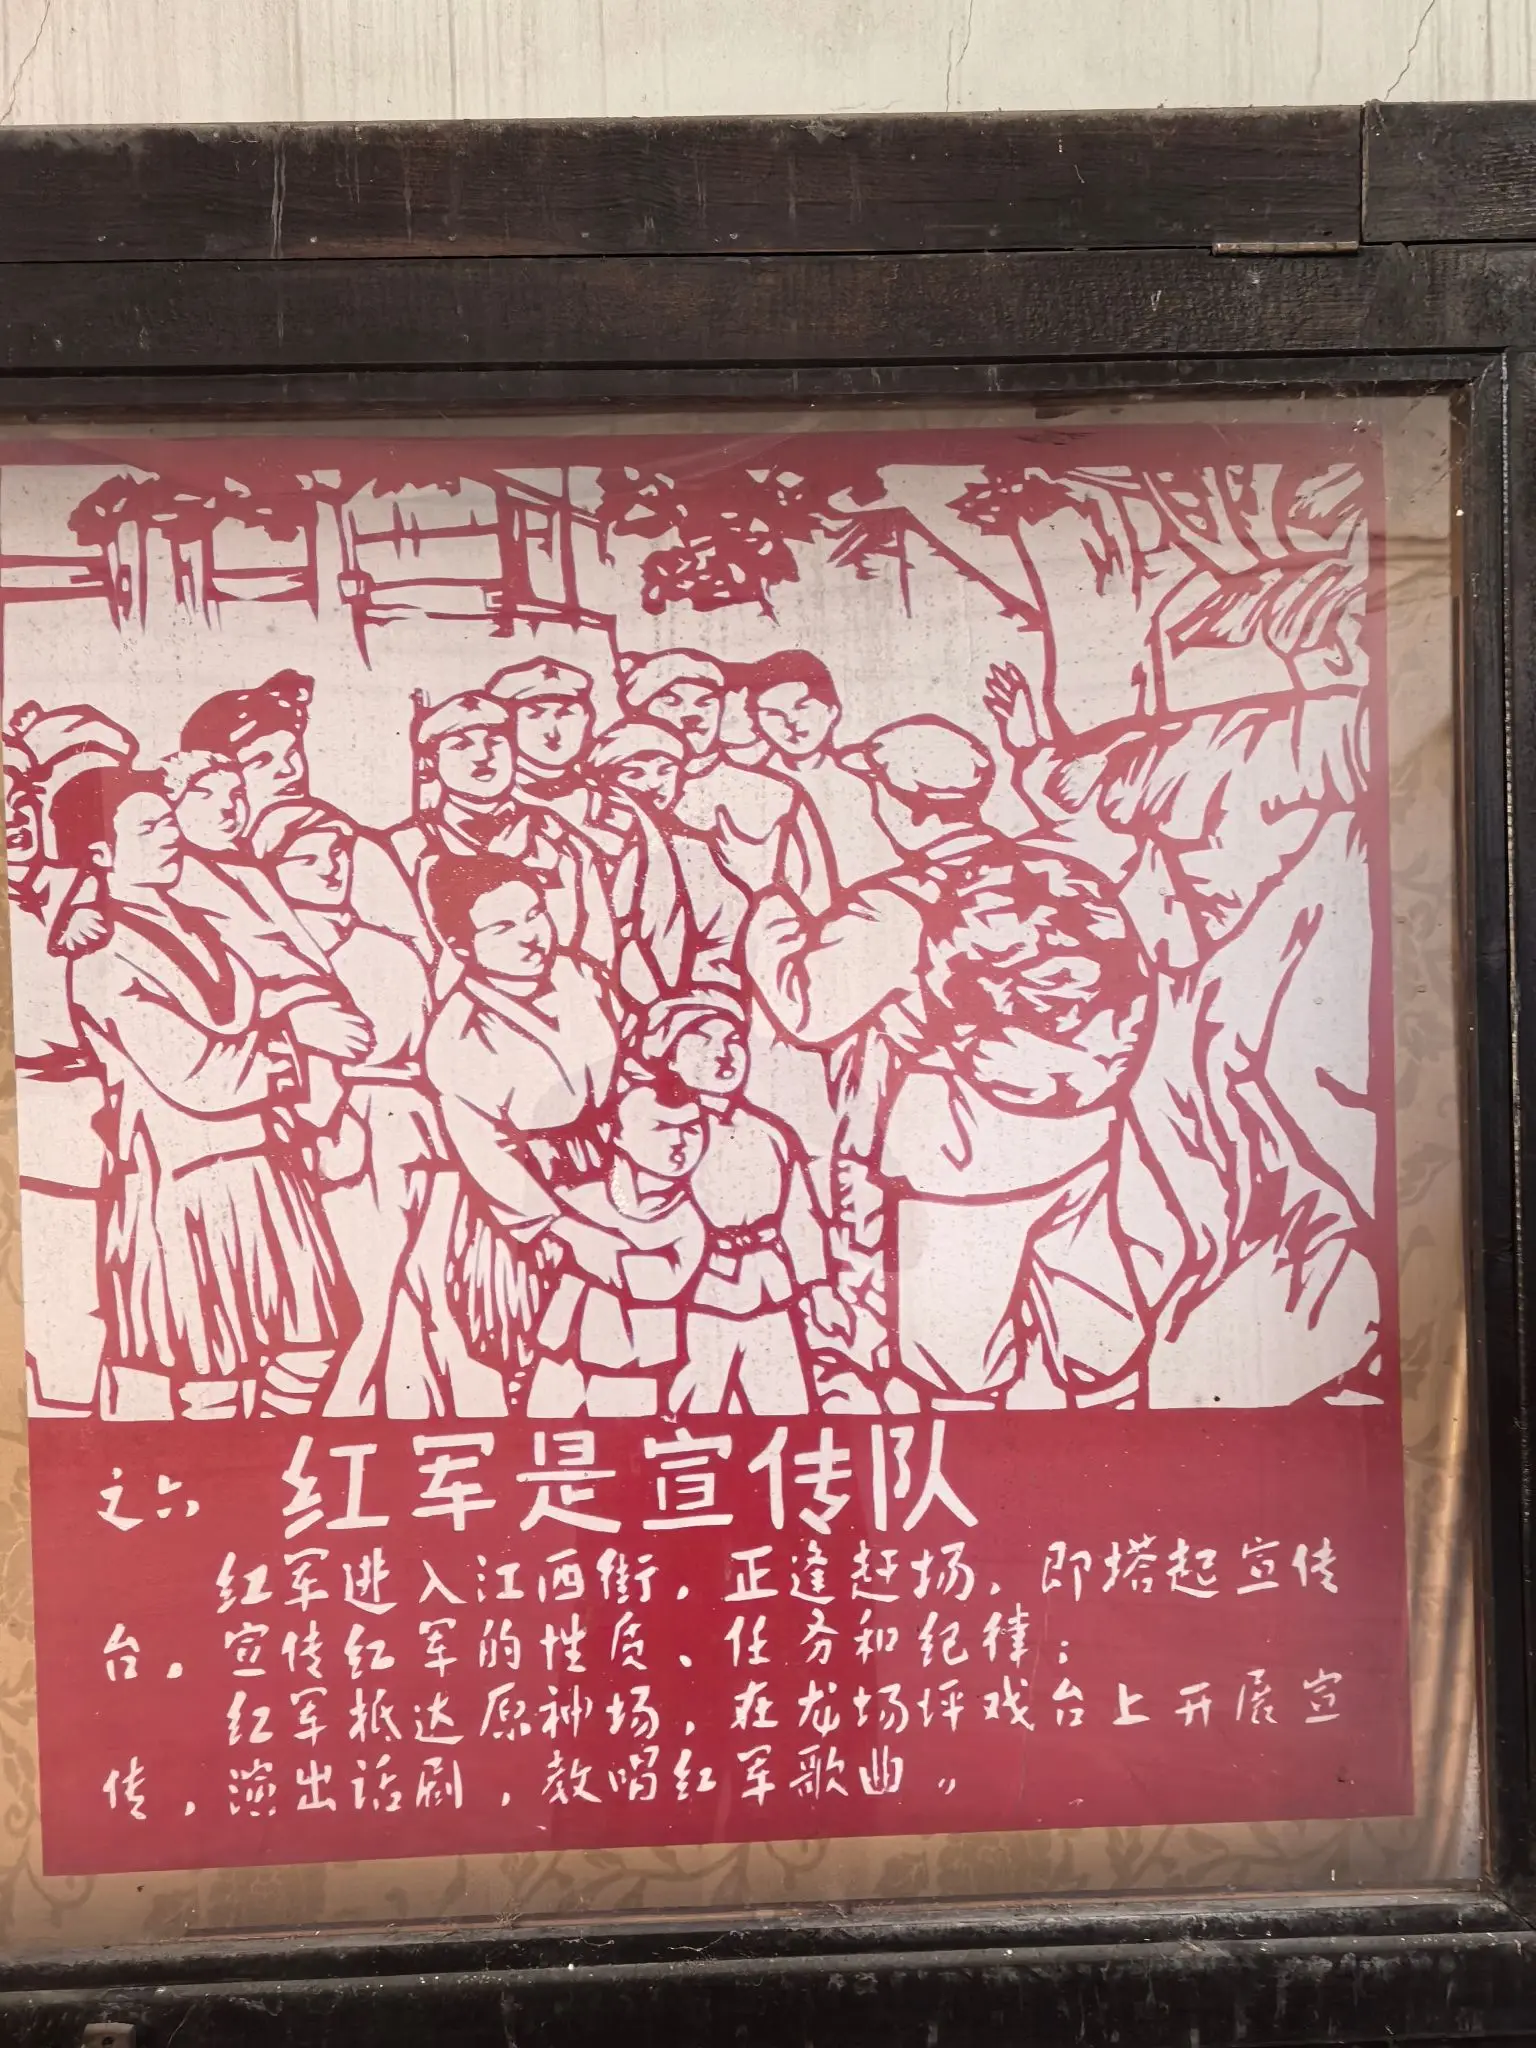 之六 红军是宣传队
红军进入江西街，正逢赶场，即搭起宣传
台，宣传红军的性质、任务和纪律；
红军抵达原神场，在龙场坪戏台上开展宣
传，演出话剧，教唱红军歌曲。